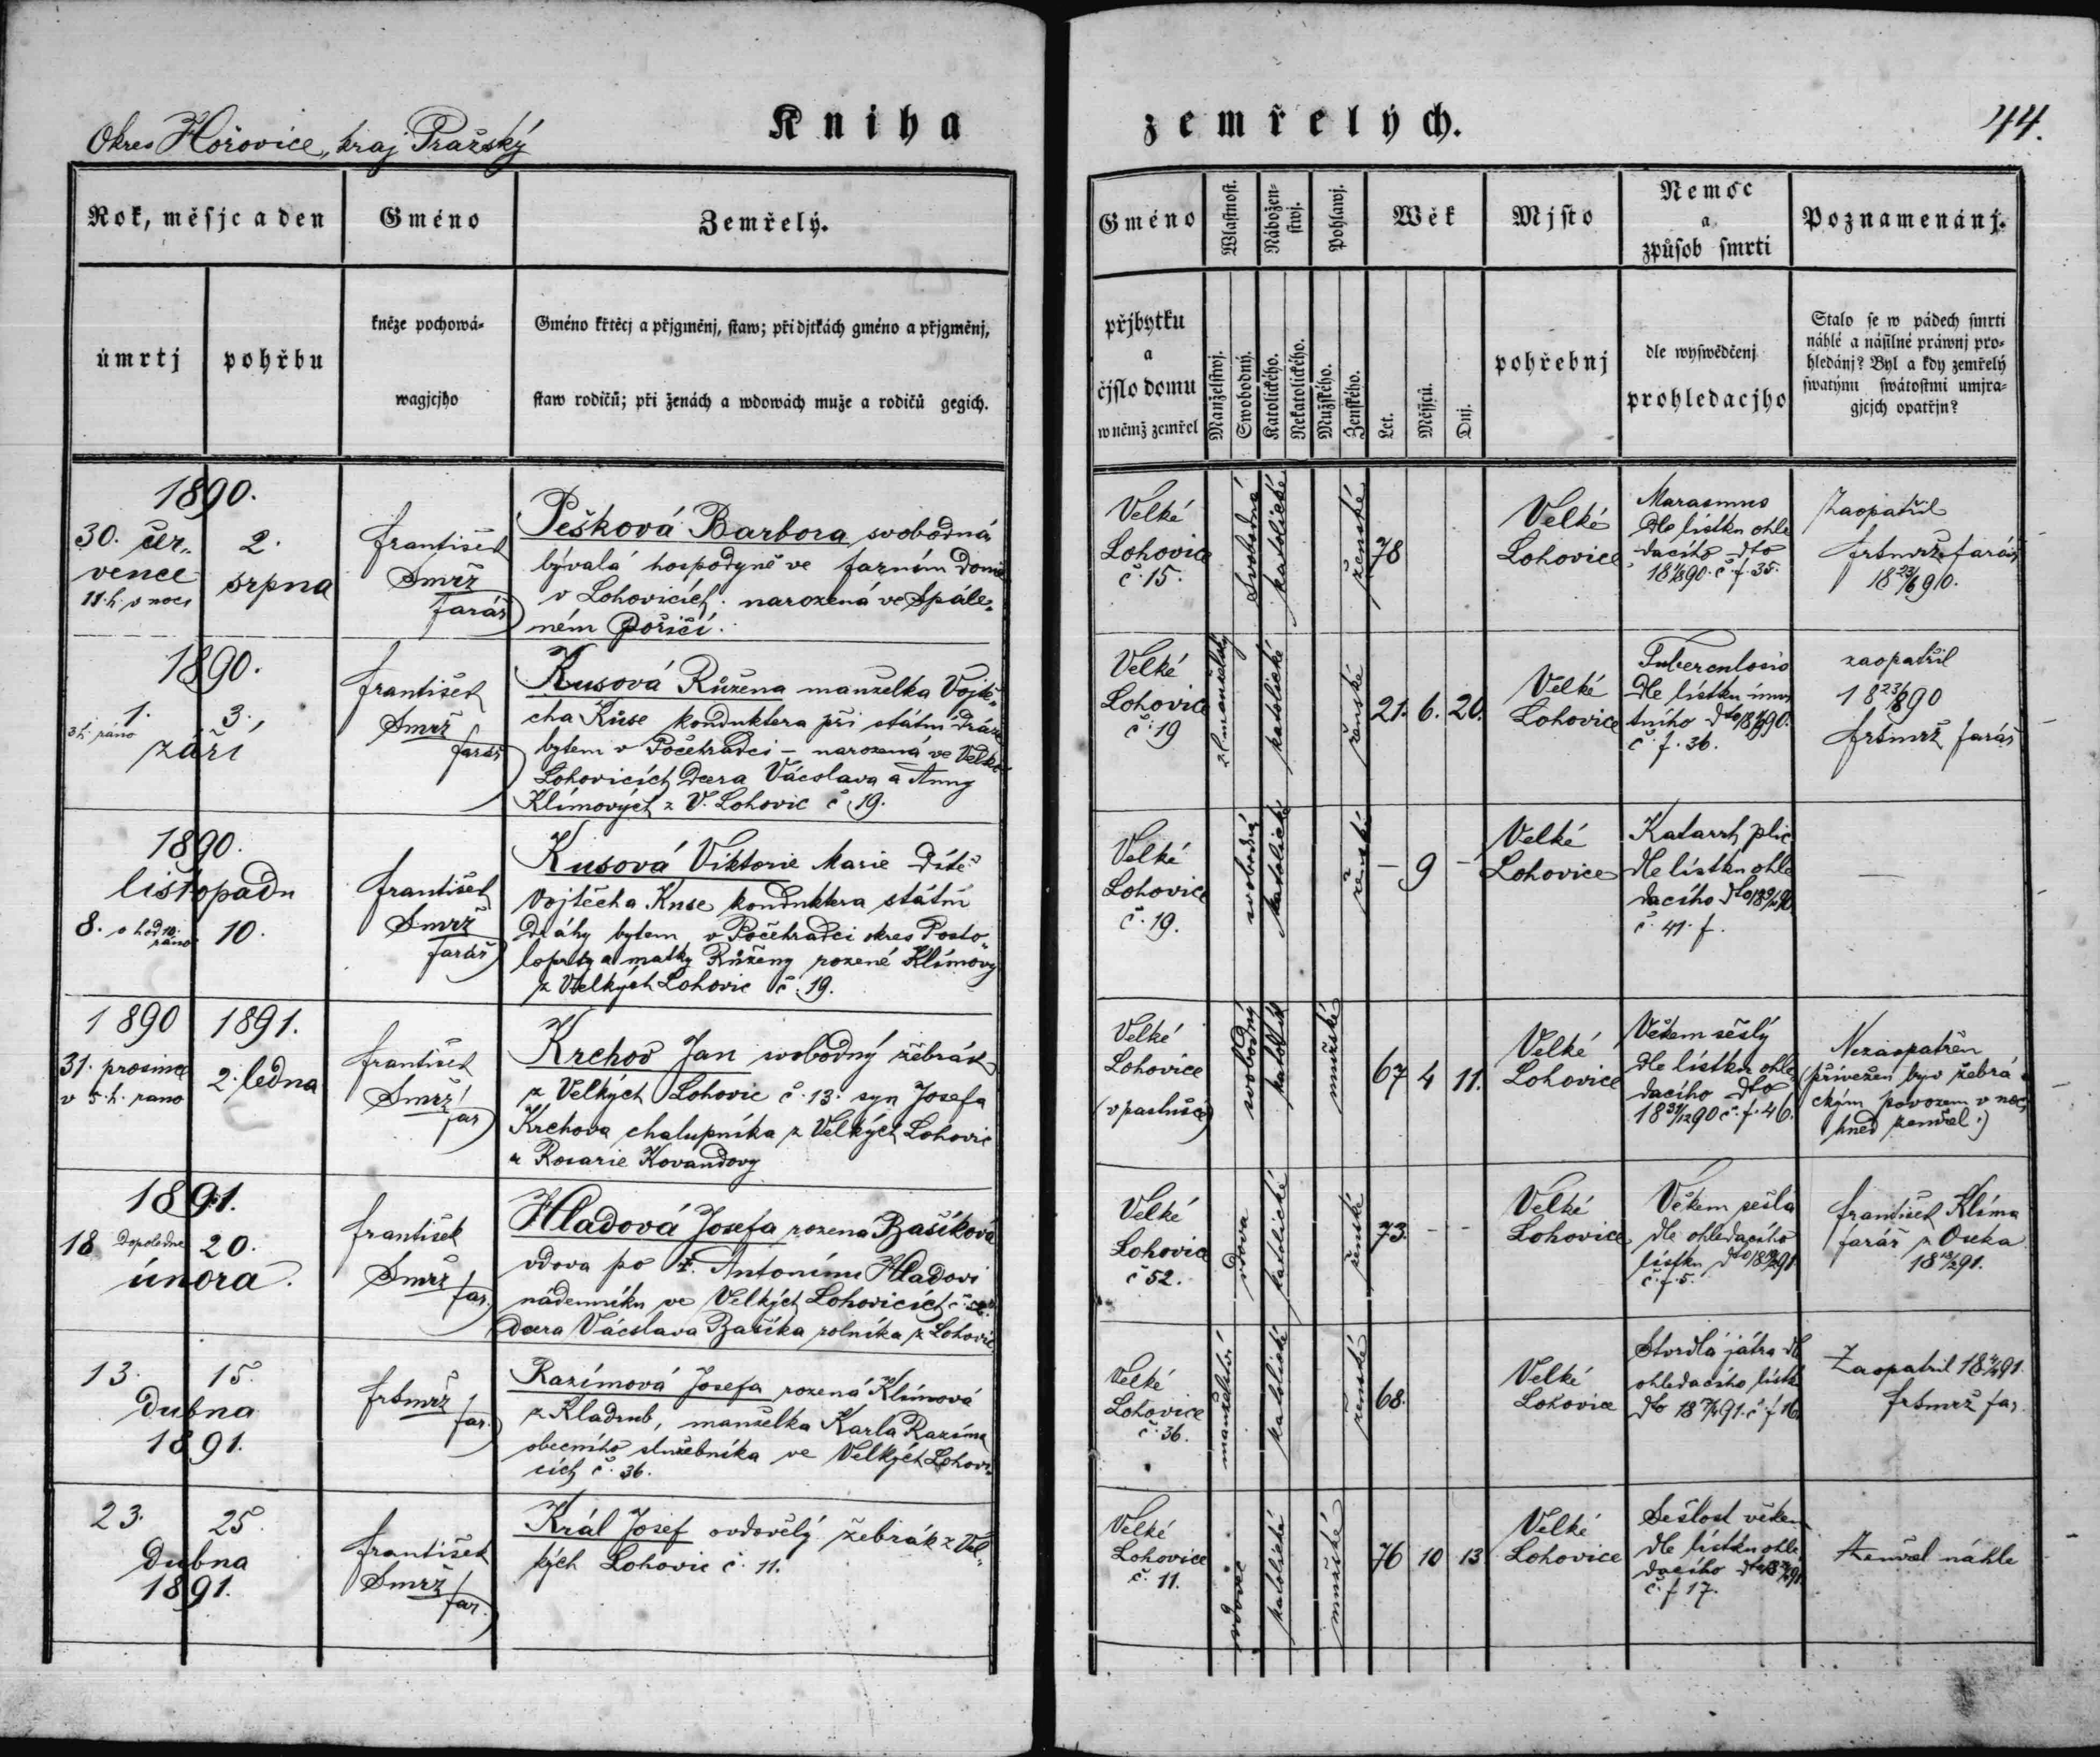 Okres Hořovice, kraj Pražský
Kniha
zemřelých.
44.
Rok, měsjc a den
Gméno
Zemřelý.
úmrtj
pohřbu
kněze pochowá-
wagjcjho
Gméno křtěcj a přjgměnj, staw; při djtkách gméno a přjgměnj,
staw rodičů; při ženách a wdowách muže a rodičů gegich.
Gméno
Wlastnost.
Nábožen-
stwj.
Pohlawj.
Wěk
Mjsto
Nemoc
a
způsob smrti
Poznamenánj.
přjbytku
a
čjslo domu
w němž zemřel
Manželstwj.
Swobodný.
Katolického.
Nekatolického.
Mužského.
Ženského.
Let.
Měsjců.
Dnj.
pohřebnj
dle wyswědčenj
prohledacjho
Stalo se w pádech smrti
náhlé a násilné práwnj pro-
hledánj? Byl a kdy zemřelý
swatými swátostmi umjra-
gjcjch opatřjn?
1890.
30. čer-
vence
11 h. v noci
2.
srpna
František
Smrž
farář
Pešková Barbora svobodná
bývalá hospodyně ve farním domě
v Lohovicích. narozená ve Spále-
ném Poříčí.
Velké
Lohovice
č. 15.
Svobodná
katolické
ženské
78
Velké
Lohovice
Marasmus
dle lístku ohle
dacího dto
18 1/8 90. č. f. 35.
Zaopatřil
frSmrž farář
18 23/6 90.
1890.
1.
3 h. ráno
3.
září
František
Smrž
farář
Kusová Růžena manželka Vojtě-
cha Kůse konduktera při státní dráze
bytem v Počehradci – narozena ve Velko
Lohovicích dcera Václava a Anny
Klímových z V. Lohovic č. 19.
Velké
Lohovice
č. 19
katolické
ženské
21. 6. 20.
Velké
Lohovice
Tuberculosis
dle lístku úmr
tního
č. f. 36.
zaopatřil
18 23/8 90
frSmrž farář
1890.
listopadu
8. o hod 10.
ráno
10.
František
Smrž
farář
Kusová Viktorie Marie dítě
Vojtěcha Kuse konduktera státní
dráhy bytem v Počehradci okres Posto-
loprty a matky Růženy rozené Klímovy
z Velkých Lohovic č. 19.
Velké
Lohovice
č. 19.
svobodná
katolické
ženské
– 9 –
Velké
Lohovice
Katarrh plic
dle lístku ohle
dacího
č. 41. f.
—
1890
31. prosince
v 5. h. rano
1891.
2. ledna
František
Smrž
far
Krchov Jan svobodný žebrák
z Velkých Lohovic č. 13. syn Josefa
Krchova chalupníka z Velkých Lohovic
a Rosarie Kovandovy
Velké
Lohovice
(v pastušce)
svobodný
katolické
mužské
67 4 11.
Velké
Lohovice
Věkem sešlý
dle lístku ohle-
dacího dto
18 31/12 90 č. f. 46.
Nezaopatřen
(přivežen byv žebrá
ckým povozem v noci
hned zemřel.)
1891.
18 dopoledne
20.
února.
František
Smrž
far.
Hladová Josefa rozena Bašíková
vdova po † Antonínu Hladovi
nádenníku ve Velkých Lohovicích č.
dcera Václava Bašíka rolníka z Lohovic
Velké
Lohovice
č 52.
vdova
katolické
ženské
73. - -
Velké
Lohovice
Věkem sešlá
dle ohledacího
lístku
č. f. 5.
František Klíma
farář z Ouka
18 18/2 91.
13.
15.
dubna
1891.
frSmrž
far.
Razímová Josefa rozená Klímová
z Kladrub, manželka Karla Razíma
obecního služebníka ve Velkých Lohovi-
cích č. 36.
Velké
Lohovice
č. 36.
manželství
katolické
ženské
68.
Velké
Lohovice
Stvrdlá játra dle
ohledacího lístk
dto č. f 16.
Zaopatřil
frSmrž far.
23.
25.
dubna
1891.
František
Smrž
far.
Král Josef ovdovělý žebrák z Vel-
kých Lohovic č. 11.
Velké
Lohovice
č. 11.
vdovec
katolické
mužské
76 10 13
Velké
Lohovice
Sešlost věkem
dle lístku ohle
dacího
č. f 17.
Zemřel náhle